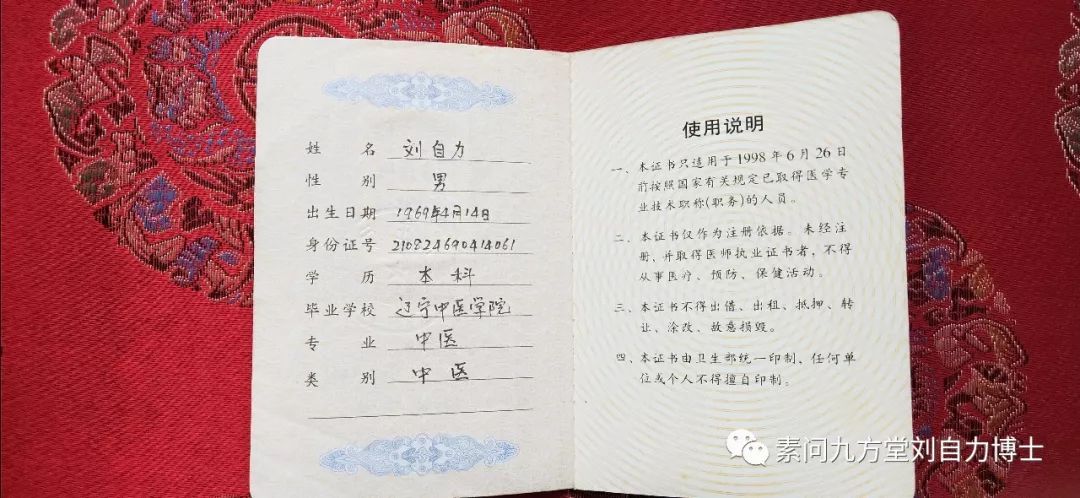 姓 名 刘自力
性 别 男
出生日期 1969年4月14日
身份证号 210824690414061
学 历 本科
毕业学校 辽宁中医学院
专 业 中医
类 别 中医
使用说明
一、本证书只适用于1998年6月26日
前按照国家有关规定已取得医学专
业技术职称(职务)的人员。
二、本证书仅作为注册依据。未经注
册、并取得医师执业证书者，不得
从事医疗、预防、保健活动。
三、本证书不得出借、出租、抵押、转
让、涂改、故意损毁。
四、本证书由卫生部统一印制、任何单
位或个人不得擅自印制。
素问九方堂刘自力博士